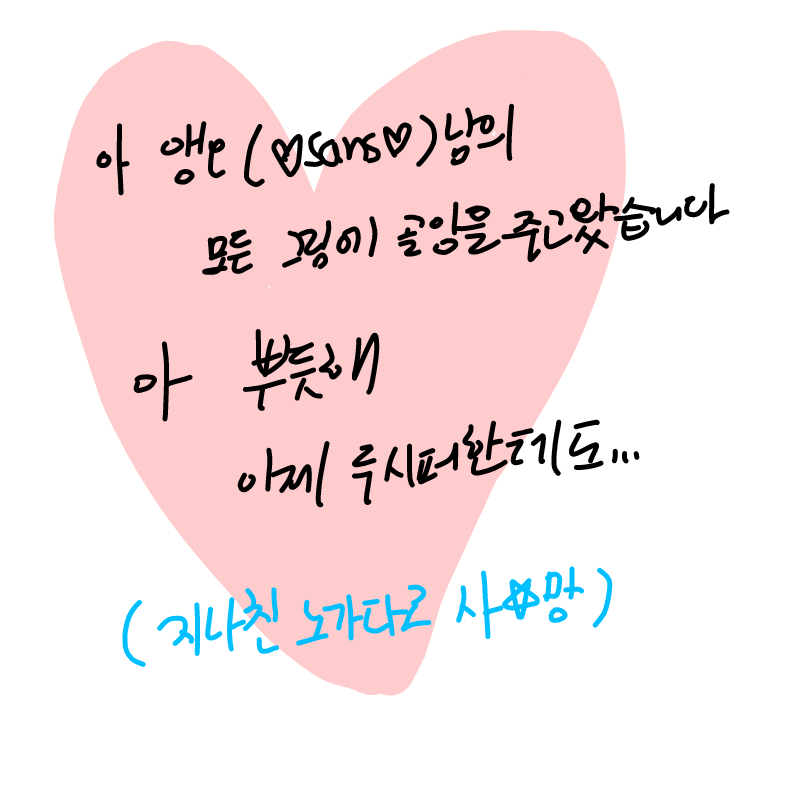 아 앵e (♡sans♡)님의
모든 그림에 골앙을 주고왔습니다
아 뿌듯해
아제 루시퍼한테도...
(지나친 노가다로 사☆망)